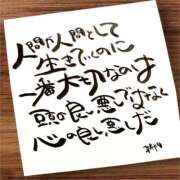 人間が人間として
生きていくのに
一番大切なのは
頭の良し悪しではなく
心の良し悪しだ